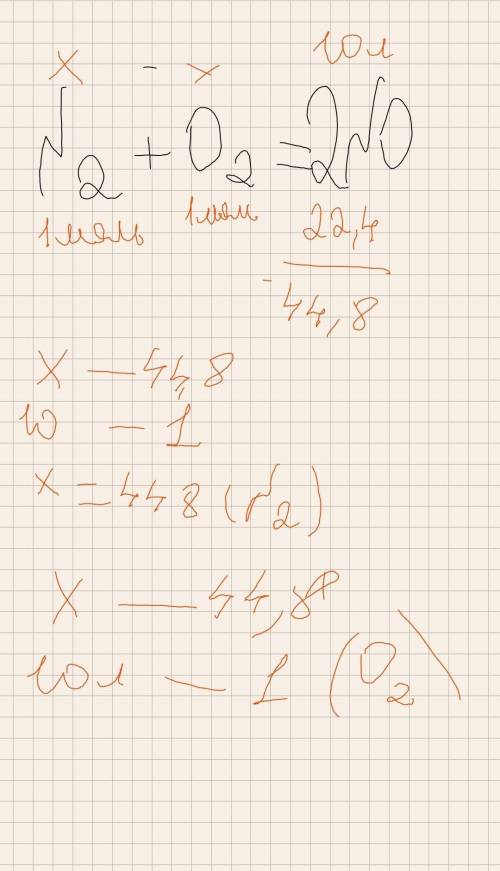 10л
x - x
N2 + O2 = 2NO
1моль 1моль 22,4
44,8
x — 44,8
10 — 1
x = 448 (N2)
x — 44,8
10л — 1 (O2)